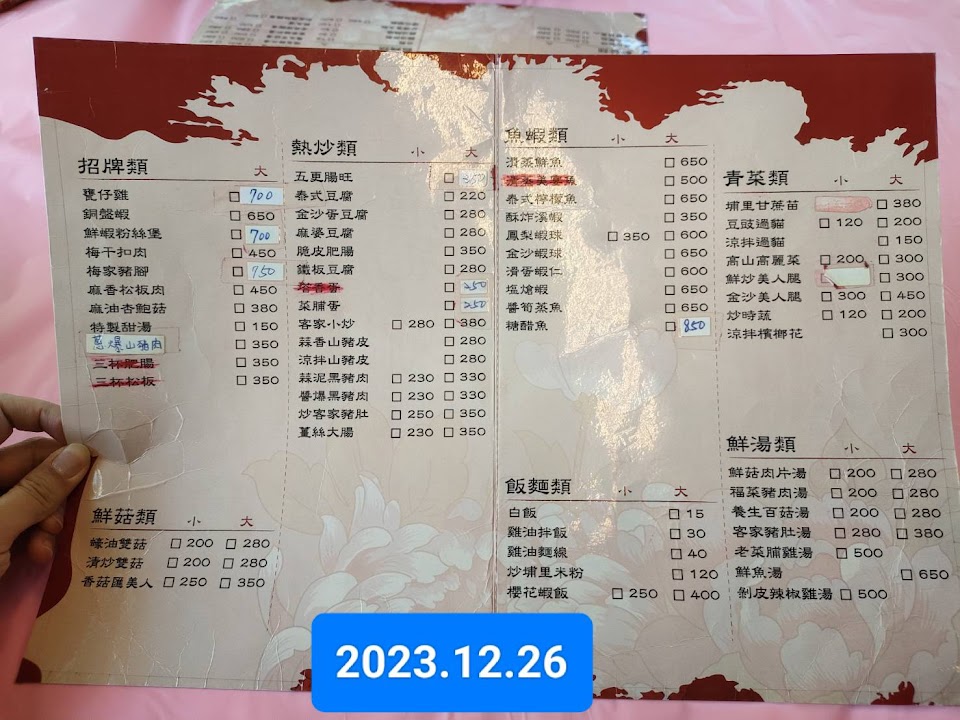 招牌類 大
甕仔雞 □ 700
銅盤蝦 □ 650
鮮蝦粉絲堡 □ 700
梅干扣肉 □ 450
梅家豬腳 □ 950
麻香松板肉 □ 450
麻油杏鮑菇 □ 380
特製甜湯 □ 150
蔥爆山豬肉 □ 350
三杯肥腸 □ 350
三杯松板 □ 350
鮮菇類 小 大
蠔油雙菇 □ 200 □ 280
清炒雙菇 □ 200 □ 280
香菇匯美人 □ 250 □ 350
熱炒類 小 大
五更腸旺 □
泰式豆腐 □ 220
金沙蛋豆腐 □ 280
麻婆豆腐 □ 280
脆皮肥腸 □ 350
鐵板豆腐 □ 280
塔香蛋 □ 250
菜脯蛋 □ 250
客家小炒 □ 280 □ 380
蒜香山豬皮 □ 280
涼拌山豬皮 □ 280
蒜泥黑豬肉 □ 230 □ 330
醬爆黑豬肉 □ 230 □ 330
炒客家豬肚 □ 250 □ 350
薑絲大腸 □ 230 □ 350
魚蝦類 小 大
清蒸鮮魚 □ 650
□ 500
泰式檸檬魚 □ 650
酥炸溪蝦 □ 350
鳳梨蝦球 □ 350 □ 600
金沙蝦球 □ 650
滑蛋蝦仁 □ 600
塩焗蝦 □ 650
醬筍蒸魚 □ 650
糖醋魚 □ 850
飯麵類 小 大
白飯 □ 15
雞油拌飯 □ 30
雞油麵線 □ 40
炒埔里米粉 □ 120
櫻花蝦飯 □ 250 □ 400
青菜類 小 大
埔里甘蔗苗 □ 380
豆豉過貓 □ 120 □ 200
涼拌過貓 □ 150
高山高麗菜 □ 200 □ 300
鮮炒美人腿 □ 300
金沙美人腿 □ 300 □ 450
炒時蔬 □ 120 □ 200
涼拌檳榔花 □ 300
鮮湯類 小 大
鮮菇肉片湯 □ 200 □ 280
福菜豬肉湯 □ 200 □ 280
養生百菇湯 □ 200 □ 280
客家豬肚湯 □ 280 □ 380
老菜脯雞湯 □ 500
鮮魚湯 □ 650
剝皮辣椒雞湯 □ 500
2023.12.26